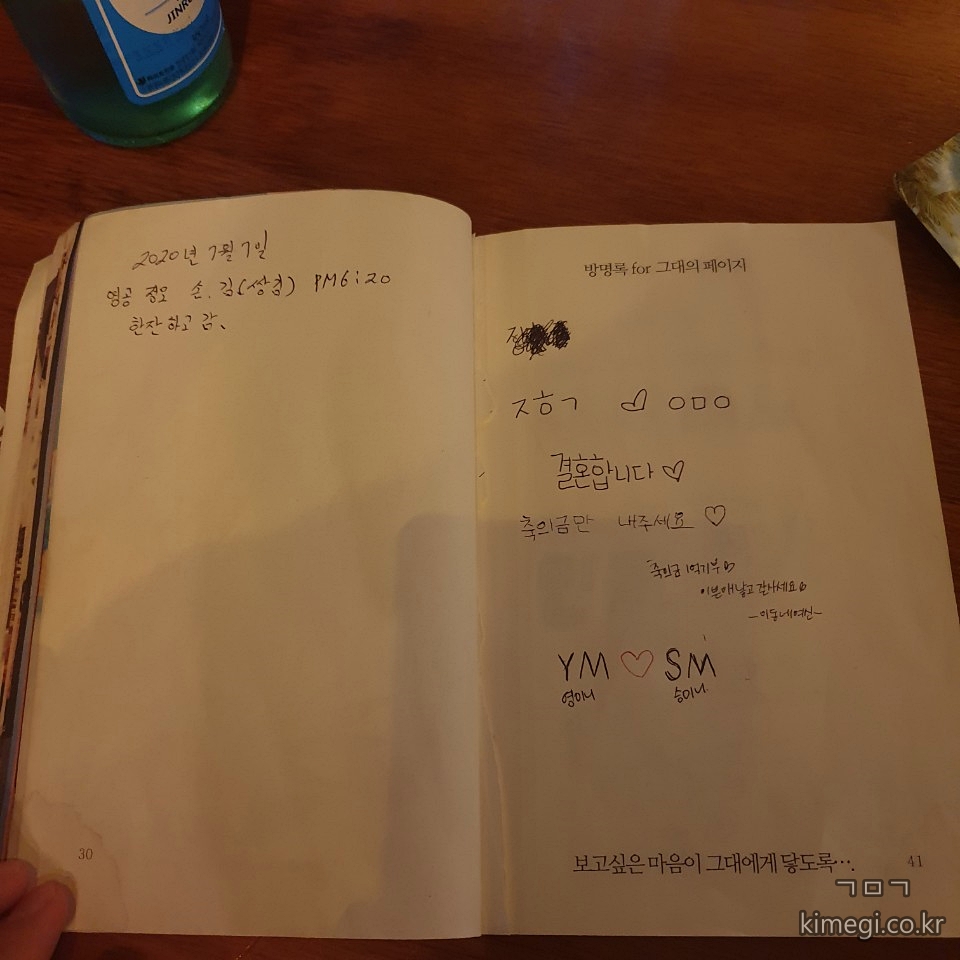 JINRO
2020년 7월 7일
영공 정오 손.김(쌍첩) PM6:20
한잔 하고 감.
30
방명록 for 그대의 페이지
ㅈㅎㄱ ♡ ㅇㅁㅇ
결혼합니다 ♡
축의금만 내주세요 ♡
축의금 1억기부♡
YM ♡ SM
영미니 승미니
보고싶은 마음이 그대에게 닿도록…
41
ㄱㅁㄱ
kimegi.co.kr